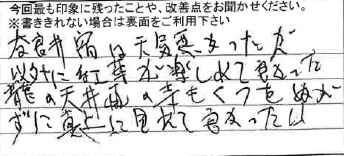 今回最も印象に残ったことや、改善点をお聞かせください。
※書ききれない場合は裏面をご利用下さい
奈良井宿は天気悪かったが
以外に紅葉が楽しめて良かった
龍の天井画の寺もくつをぬが
ずに真上に見れて良かった